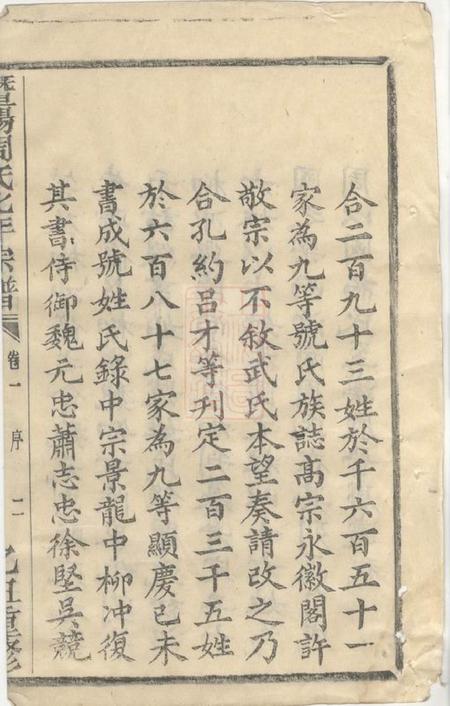 合二百九十三姓於千六百五十一
家為九等號氏族誌高宗永徽閣許
敬宗以不敘武氏本望奏請改之乃
合孔約呂才等刊定二百三千五姓
於六百八十七家為九等顯慶已未
書成號姓氏錄中宗景龍中柳冲復
其書侍御魏元忠蕭志忠徐堅吳競
暨陽周氏 宗譜 卷一 序 二